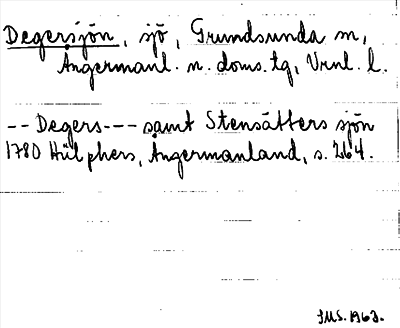 Degersjön, sjö, Grundsunda sn,
Ångermanl. n. doms.tg, Vrnl. l.
-- Degers--- samt Stensätters sjön
1780 Hülphers, Ångermanland, s. 264.
JMS. 1963.